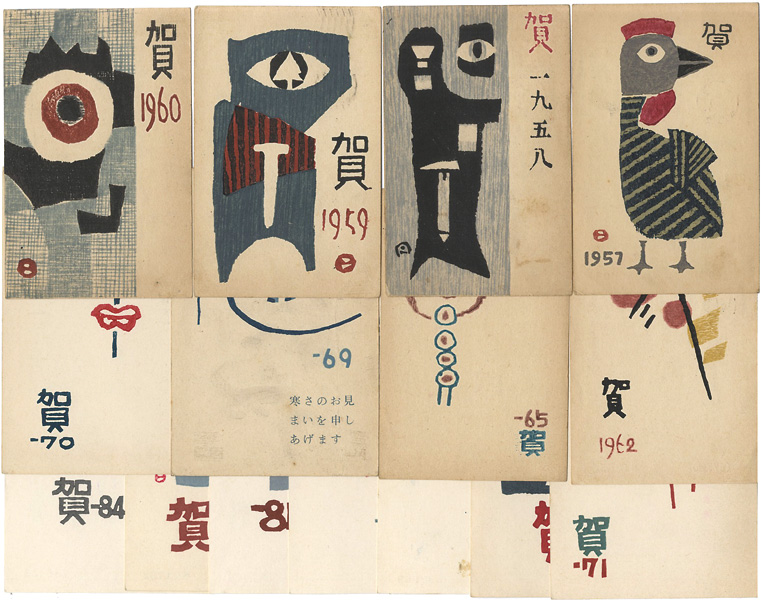 賀
1960
賀
1959
賀
一九五八
賀
1957
賀
-70
-69
寒さのお見
まいを申し
あげます
-65
賀
賀
1962
賀-84
賀
賀
-71